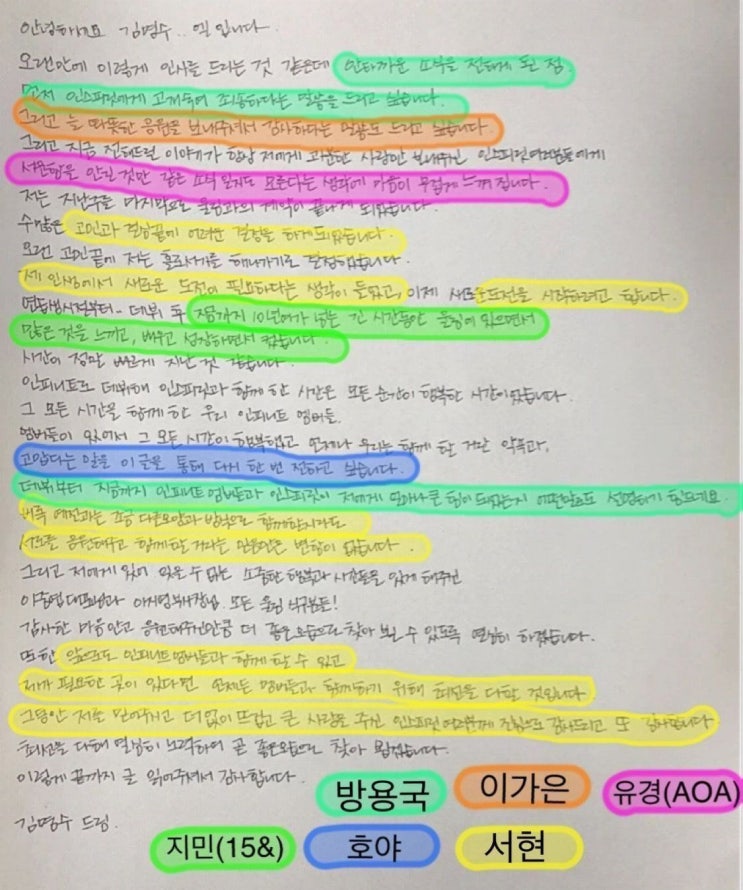 안녕하세요 김명수.. 엘 입니다.
오랜만에 이렇게 인사를 드리는 것 같은데 안타까운 소식을 전하게 된 점
먼저 인스피릿에게 고개숙여 죄송하다는 말씀을 드리고 싶습니다.
그리고 늘 따뜻한 응원을 보내주셔서 감사하다는 말씀도 드리고 싶습니다.
그리고 지금 전해드릴 이야기가 항상 저에게 과분한 사랑만 보내주신 인스피릿여러분들에게
서운함을 안길 것만 같은 소식 일지도 모른다는 생각에 마음이 무겁게 느껴집니다.
저는 지난주를 마지막으로 울림과의 계약이 끝나게 되었습니다.
수많은 고민과 걱정끝에 어려운 결정을 하게되었습니다.
오랜 고민끝에 저는 홀로서기를 해나가기로 결정했습니다.
제 인생에서 새로운 도전이 필요하다는 생각이 들었고, 이제 새로운도전을 시작하려고 합니다.
연습생시절부터~ 데뷔 후 지금까지 10년여가 넘는 긴 시간동안 울림에 있으면서
많은 것을 느끼고, 배우고 성장하면서 컸습니다.
시간이 정말 빠르게 지난 것 같습니다.
인피니트로 데뷔해 인스피릿과 함께 한 시간은 모든 순간이 행복한 시간이었습니다.
그 모든 시간을 함께 한 우리 인피니트 멤버들.
멤버들이 있어서 그 모든 시간이 행복했고 언제나 우리는 함께 할 거란 약속과,
고맙다는 말을 이 글을 통해 다시 한 번 전하고 싶습니다.
데뷔부터 지금까지 인피니트 멤버들과 인스피릿이 저에게 얼마나 큰 힘이 되었는지 어떤말로도 설명하기 힘드네요.
비록 예전과는 조금 다른모양과 방식으로 함께할지라도
서로를 응원해주고 함께할 거라는 믿음만은 변함이 없습니다.
그리고 저에게 있어 잊을 수 없는 소중한 행복과 시간들을 있게 해주신
이중엽대표님과 이지영부사장님. 모든 울림 식구분들!
감사한 마음안고 응원해주신만큼 더 좋은모습으로 찾아 뵐 수 있도록 열심히 하겠습니다.
또한 앞으로도 인피니트멤버들과 함께 할 수 있고
제가 필요한 곳이 있다면 언제든 멤버들과 함께하기 위해 최선을 다할 것입니다
그동안 저를 믿어주시고 더없이 뜨겁고 큰 사랑을 주신 인스피릿 여러분께 진심으로 감사드리고 또 감사합니다
최선을 다해 열심히 노력하여 곧 좋은모습으로 찾아 뵙겠습니다.
이렇게 끝까지 글 읽어주셔서 감사합니다.
김명수 드림.
방용국 이가은 유경(AOA)
지민(15&) 호야 서현